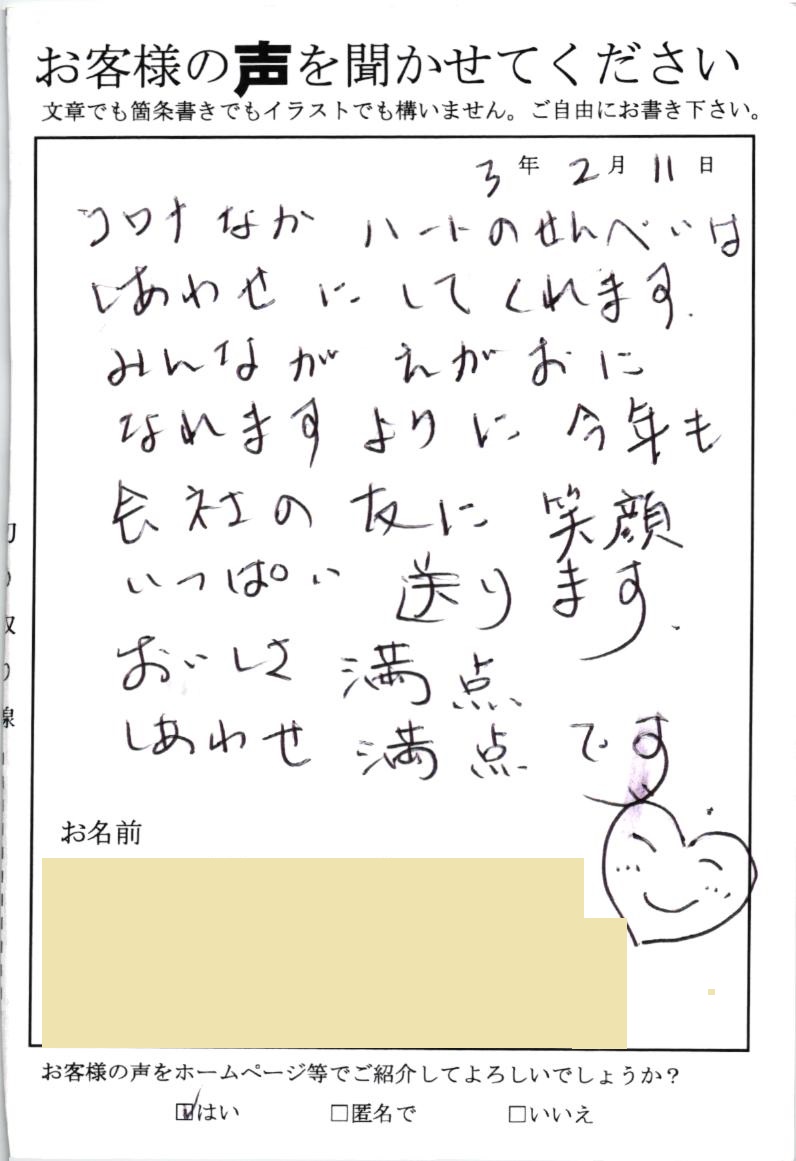 お客様の声を聞かせてください
文章でも箇条書きでもイラストでも構いません。ご自由にお書き下さい。
3年 2月 11日
コロナなか ハートのせんべいは
しあわせ にしてくれます.
みんなが えがおに
なれますよりに 今年も
会社の友に 笑顔
いっぱい 送ります.
おいしさ 満点
しあわせ 満点 です
お名前
お客様の声をホームページ等でご紹介してよろしいでしょうか？
はい □匿名で □いいえ
切り取り線